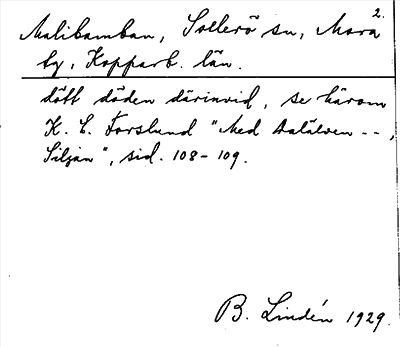 2.
Malibamban, Sollerö sn, Mora
by, Kopparb. län.
dött döden därinvid, se härom
K. E. Forslund "Med Dalälven --,
Siljan", sid. 108-109.
B. Lindén 1929.